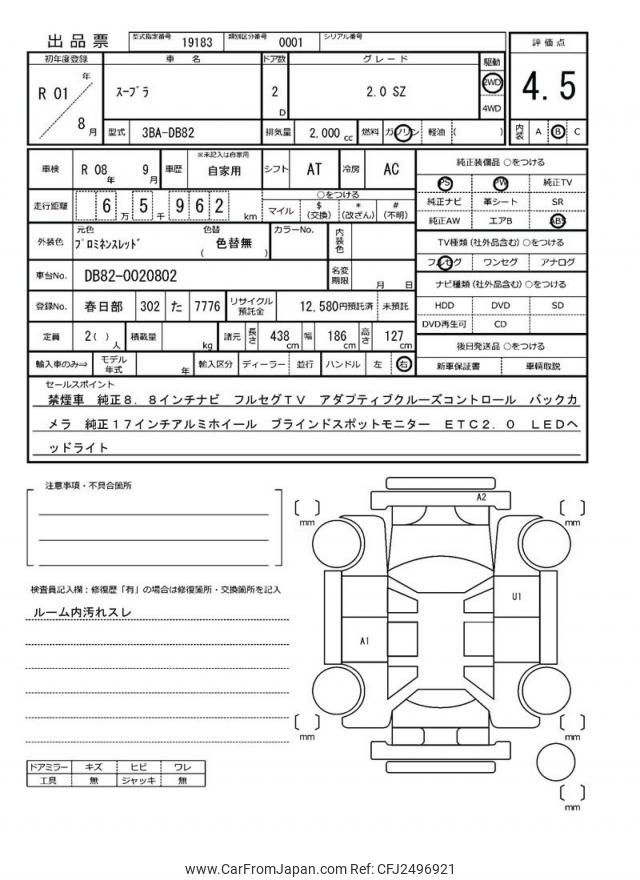 出品票 型式指定番号 19183 類別区分番号 0001 シリアル番号
初年度登録 車名 ドア数 グレード 駆動 評価点
R 01 年 8 月 スープラ 2 D 2.0 SZ 2WD 4WD 4.5
型式 3BA-DB82 排気量 2,000 cc 燃料 ガソリン 軽油 ( ) 内装 A B C
車検 R 08 年 9 月 車歴 ※未記入は自家用 自家用 シフト AT 冷房 AC
走行距離 6 万 5 千 9 6 2 km ○をつける
マイル $ (交換) * (改ざん) # (不明)
外装色 元色 プロミネンスレッド 色替 ( 色替無 ) カラーNo. 内装色
車台No. DB82-0020802 名変期限 月 日
登録No. 春日部 302 た 7776 リサイクル預託金 12,580円預託済 未預託
定員 2( ) 人 積載量 kg 諸元 長さ 438 cm 幅 186 cm 高さ 127 cm
輸入車のみ⇒ モデル年式 年 輸入区分 ディーラー 並行 ハンドル 左 右
純正装備品 ○をつける
PS PW 純正TV
純正ナビ 革シート SR
純正AW エアB ABS
TV種類 (社外品含む) ○をつける
フルセグ ワンセグ アナログ
ナビ種類 (社外品含む) ○をつける
HDD DVD SD
DVD再生可 CD
後日発送品 ○をつける
新車保証書 車輌取説
セールスポイント
禁煙車 純正8.8インチナビ フルセグTV アダプティブクルーズコントロール バックカ
メラ 純正17インチアルミホイール ブラインドスポットモニター ETC2.0 LEDヘ
ッドライト
注意事項・不具合箇所
検査員記入欄:修復歴「有」の場合は修復箇所・交換箇所を記入
ルーム内汚れスレ
ドアミラー キズ ヒビ ワレ
工具 無 ジャッキ 無
A2
mm mm
U1
A1
mm mm
mm
www.CarFromJapan.com Ref: CFJ2496921